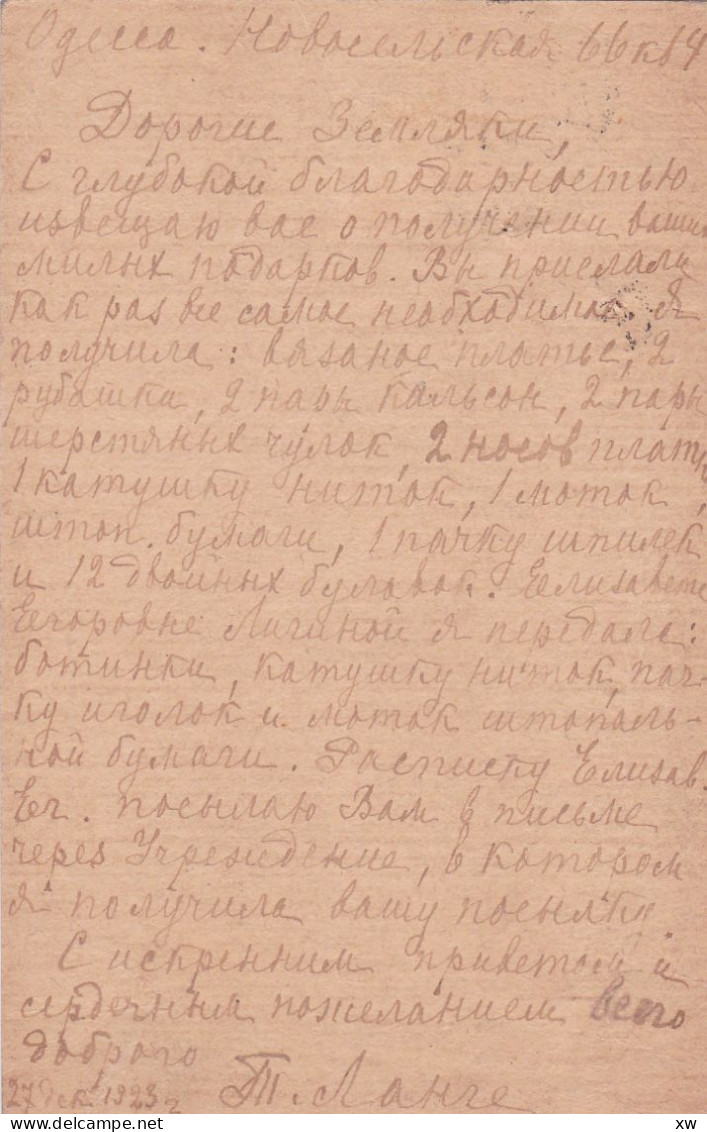 Одесса. Новосельская 66 к 14
Дорогие Земляки,
С глубокой благодарностью
извещаю вас о получении ваших
милых подарков. Вы прислали
как раз все самое необходимое. Я
получила: вязаное платье, 2
рубашки, 2 пары кальсон, 2 пары
шерстяных чулок, 2 носов платк
1 катушку ниток, 1 моток,
штоп. бумаги, 1 пачку шпилек
и 12 двойных булавок. Елизавете
Егоровне Личиной я передала:
ботинки, катушку ниток, пач-
ку иголок и моток штопаль-
ной бумаги. Расписку Елизав.
Ег. посылаю Вам в письме
через Учреждение, в котором
я получила вашу посылку.
С искренним приветом и
сердечным пожеланием всего
доброго
Т. Ланге
27 дек. 1923 г
xw